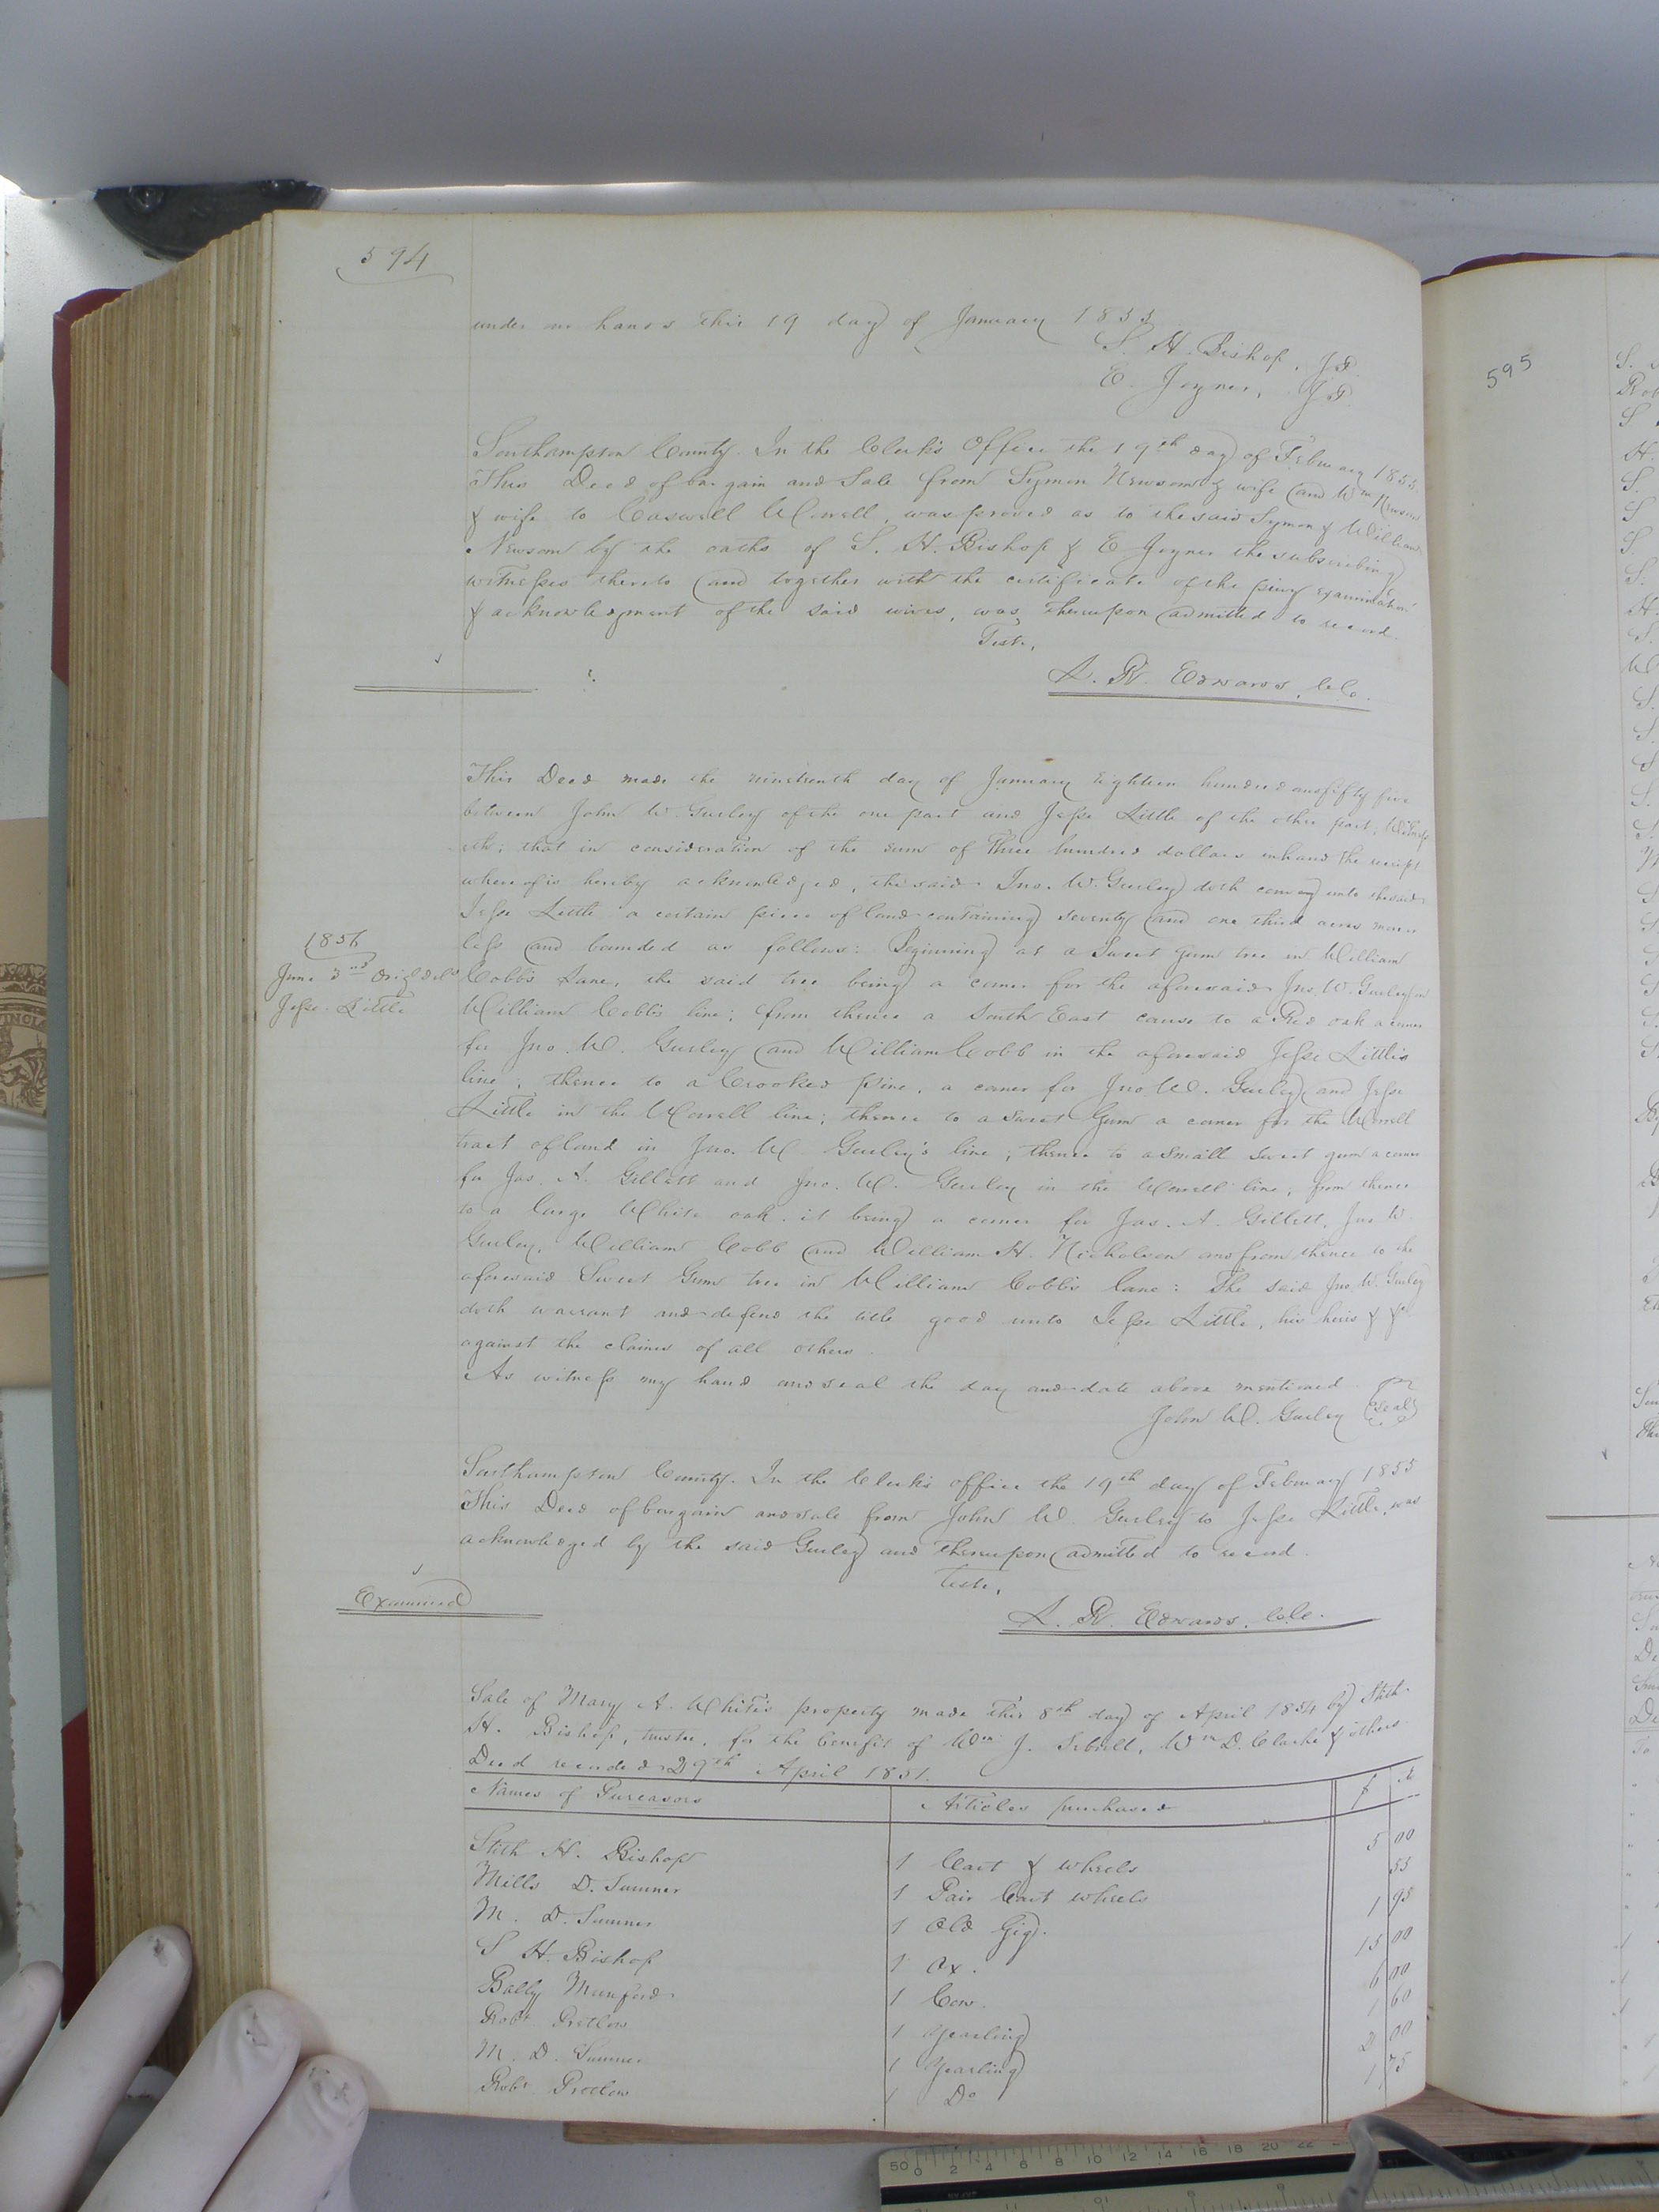 594
under our hands this 19 day of January 1855
S. H. Bishop, J.P.
E. Joyner, J.P.
Southampton County. In the Clerk's Office the 19th day of February 1855.
This Deed of bargain and Sale from Symon Newsom & wife and Wm Newsom
& wife to Caswell Worrell, was proved as to the said Symon & William
Newsom by the oaths of S. H. Bishop & E Joyner the subscribing
witnesses thereto and together with the certificate of the privy examination
& acknowledgment of the said wives, was thereupon admitted to record.
Teste,
L. R. Edwards, C.C.
This Deed made the nineteenth day of January Eighteen hundred and fifty five
between John W. Gurley of the one part and Jesse Little of the other part, Witness
eth; that in consideration of the sum of Three hundred dollars in hand the receipt
whereof is hereby acknowledged, the said Jno. W. Gurley doth convey unto the said
Jesse Little a certain piece of land containing seventy and one third acres more or
less and bounded as follows: Beginning at a Sweet gum tree in William
1856
June 3rd Orig. deld
Jesse Little
Cobb's Lane, the said tree being a corner for the aforesaid Jno. W. Gurley in
William Cobb's line; from thence a South East course to a Red oak a corner
for Jno. W. Gurley and William Cobb in the aforesaid Jesse Little's
line; thence to a Crooked pine, a corner for Jno. W. Gurley and Jesse
Little in the Worrell line; thence to a Sweet Gum a corner for the Worrell
tract of land in Jno. W. Gurley's line; thence to a small sweet gum a corner
for Jas. A. Gillett and Jno. W. Gurley in the Worrell line; from thence
to a large White oak, it being a corner for Jas. A. Gillett, Jno W.
Gurley, William Cobb and William H. Nicholson and from thence to the
aforesaid Sweet Gum tree in William Cobb's lane: The said Jno. W. Gurley
doth warrant and defend the title good unto Jesse Little, his heirs &
against the claims of all others.
As witness my hand and seal the day and date above mentioned
John W. Gurley (Seal)
Southampton County. In the Clerk's office the 19th day of February 1855
This Deed of bargain and sale from John W. Gurley to Jesse Little, was
acknowledged by the said Gurley and thereupon admitted to record.
Teste,
Examined
L. R. Edwards, C.C.
Sale of Mary A. White's property made this 8th day of April 1854 by Stith
H. Bishop, trustee, for the benefit of Wm J. Sebrell, Wm D. Clarke & others.
Deed recorded 29th April 1851.
Names of Purcasors Articles purchased $
Stith H. Bishop 1 Cart & wheels 5 00
Mills D. Sumner 1 Pair Cart wheels 55
M. D. Sumner 1 Old Gig. 1 95
S H. Bishop 1 Ox. 15 00
Bally Munford 1 Cow. 6 00
Robt. Pretlow 1 Yearling 1 60
M. D. Sumner 1 Yearling 2 00
Robt. Pretlow 1 Do 1 75
595
50 0 2 4 6 8 10 12 14 16 18 20 22